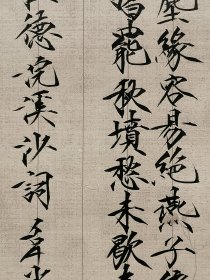 塵緣容易絕燕子
唱罷秋墳愁未歇
德浣溪沙詞